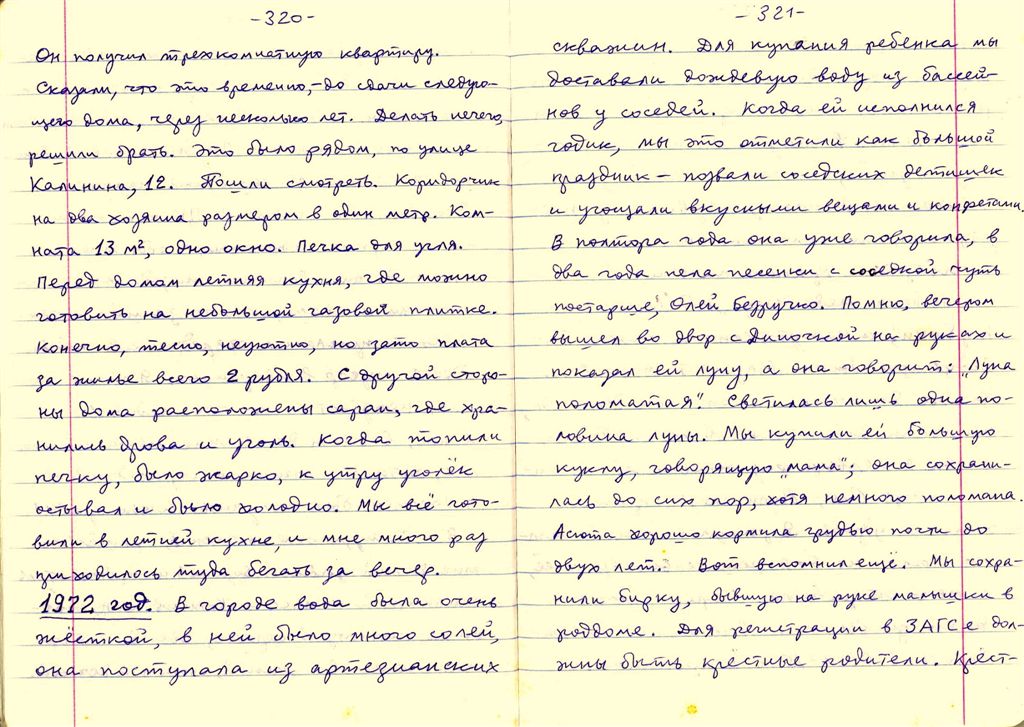 -320-
Он получил трехкомнатную квартиру.
Сказали, что это временно,-до сдачи следую-
щего дома, через несколько лет. Делать нечего,
решили брать. Это было рядом, по улице
Калинина, 12. Пошли смотреть. Коридорчик
на два хозяина размером в один метр. Ком-
ната 13 м², одно окно. Печка для угля.
Перед домом летняя кухня, где можно
готовить на небольшой газовой плитке.
Конечно, тесно, неуютно, но зато плата
за жилье всего 2 рубля. С другой сторо-
ны дома расположены сараи, где хра-
нились дрова и уголь. Когда топили
печку, было жарко, к утру уголёк
остывал и было холодно. Мы всё гото-
вили в летней кухне, и мне много раз
приходилось туда бегать за вечер.
1972 год. В городе вода была очень
жёсткой, в ней было много солей,
она поступала из артезианских
-321-
скважин. Для купания ребенка мы
доставали дождевую воду из бассей-
нов у соседей. Когда ей исполнился
годик, мы это отметили как большой
праздник - позвали соседских детишек
и угощали вкусными вещами и конфетами.
В полтора года она уже говорила, в
два года пела песенки с соседкой чуть
постарше, Олей Безручко. Помню, вечером
вышел во двор с Диночкой на руках и
показал ей луну, а она говорит: „Луна
поломатая". Светилась лишь одна по-
ловина луны. Мы купили ей большую
куклу, говорящую „мама"; она сохрани-
лась до сих пор, хотя немного поломана.
Асюта хорошо кормила грудью почти до
двух лет. Вот вспомнил ещё. Мы сохра-
нили бирку, бывшую на руке малышки в
роддоме. Для регистрации в ЗАГСе дол-
жны быть крёстные родители. Крёст-